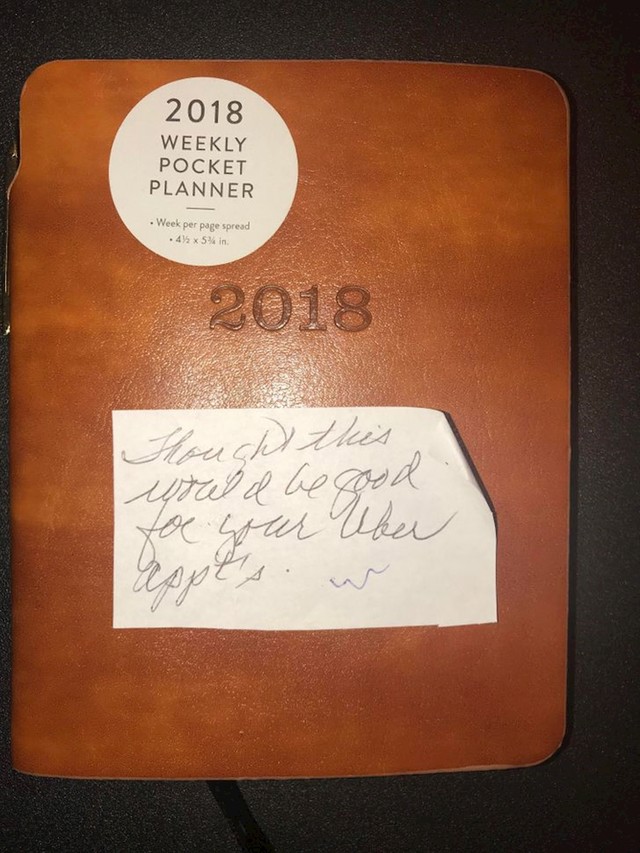 2018
WEEKLY
POCKET
PLANNER
• Week per page spread
• 4½ x 5¾ in.
2018
Thought this
would be good
for your Uber
appt's.